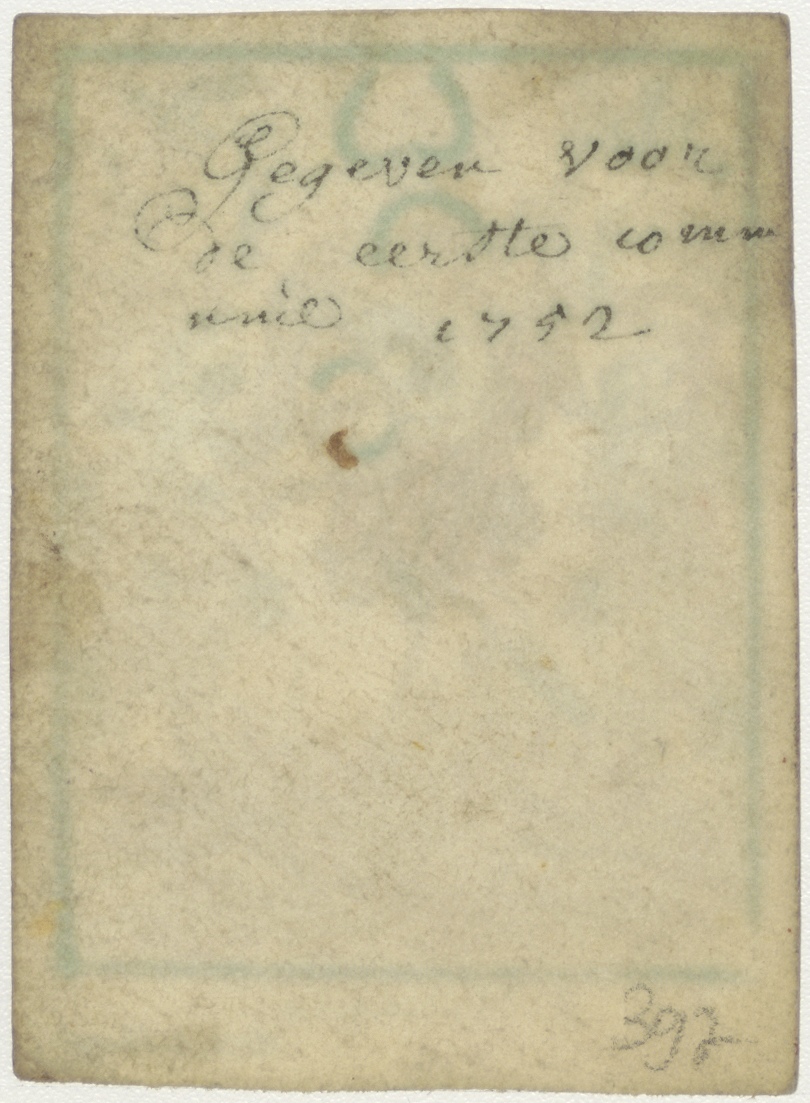 Gegeven voor
de eerste comm
unie 1752
397